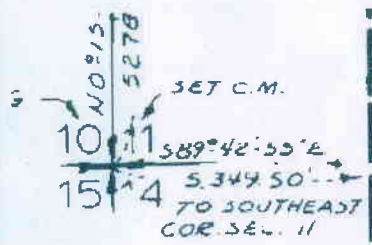 N0°15
5278
SET C.M.
10 11
S89°42'53"E
15 14
5,349.50'
TO SOUTHEAST
COR. SEC. 11